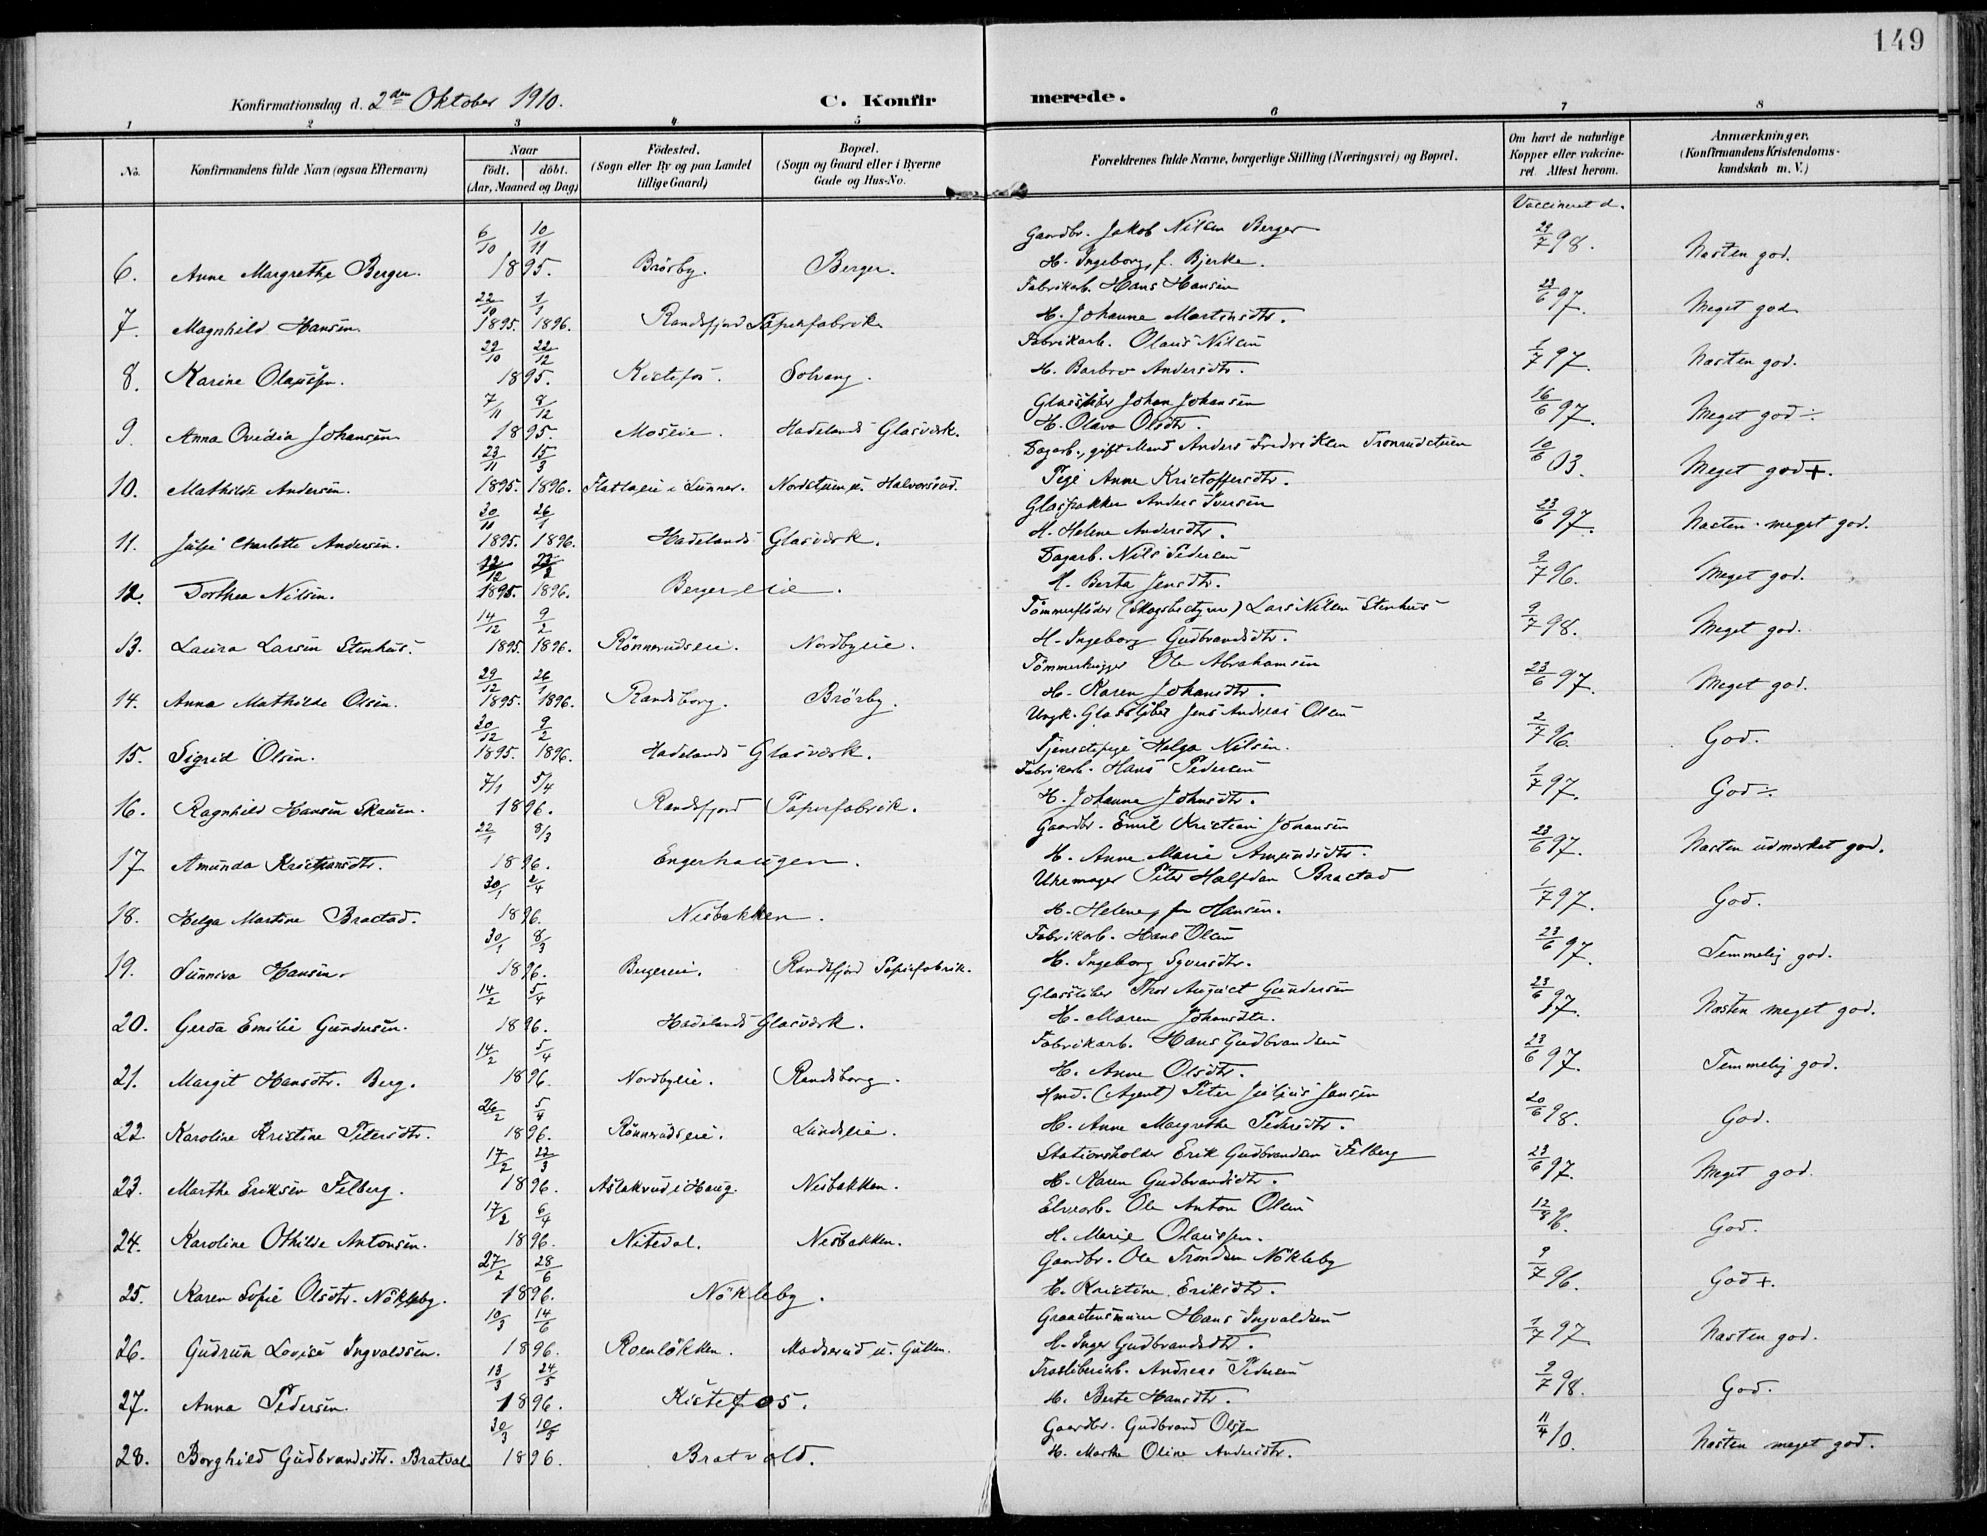 149
Konfirmationsdag d. 2den Oktober 1910. C. Konfirmerede.
1 2 3 4 5 6 7 8
No. Konfirmandens fulde Navn (ogsaa Efternavn) Naar født. døbt. (Aar, Maaned og Dag) Fødested. (Sogn eller By og paa Landet tillige Gaard) Bopæl. (Sogn og Gaard eller i Byerne Gade og Hus-No. Forældrenes fulde Navne, borgerlige Stilling (Næringsvei) og Bopæl. Om havt de naturlige Kopper eller vaccineret. Attest herom. Anmærkninger. (Konfirmandens Kristendomskundskab m. V.)
Vaccineret d.
6/10 10/11 Gaardbr. Jakob Nilsen Berger 29/7 98.
6. Anne Margrethe Berger. 1895. Brörby. Berger. H. Ingeborg, f. Bjerke. Næsten god.
22/10 1/1 Fabrikarb. Hans Hansen 23/6 97.
7. Magnhild Hansen. 1895. 1896. Randsfjord Papirfabrik H. Johanne Martinsdtr. Meget god.
29/10 22/12 Fabrikarb. Olaus Nilsen 1/7 97.
8. Karine Olaussen. 1895. Kistefos. Solvang. H. Barbro Andersdtr. Næsten god.
7/11 8/12 Glassliber Johan Johansen 16/6 97.
9. Anna Ovidia Johansen. 1895. Moseie. Hadelands Glasværk. H. Olava Olsdtr. Meget god ÷
23/11 15/3 Dagarb., gift Mand Anders Fredriksen Tronrudstuen 10/6 03.
10. Mathilde Andersen. 1895. 1896. Flattaeie i Lunner. Nordstuen u. Halvorsrud. Pige Anne Kristoffersdtr. Meget god +.
30/11 26/1 Glaspakker Anders Iversen 23/6 97.
11. Julie Charlotte Andersen. 1895. 1896. Hadelands Glasværk. H. Helene Andersdtr. Næsten meget god.
12/12 23/2 Dagarb. Nils Pedersen 9/7 96.
12. Dorthea Nilsen. 1895. 1896. Bergereie. H. Berta Jensdtr. Meget god.
14/12 9/2 Tömmerflöder (Skogsbestyrer) Lars Nilsen Stenhus 9/7 98.
13. Laura Larsen Stenhus. 1895. 1896. Rönnerudseie. Nordbyeie. H. Ingeborg Gudbrandsdtr. Meget god.
29/12 26/1 Tömmerhugger Ole Abrahamsen 23/6 97.
14. Anna Mathilde Olsen. 1895. 1896. Randsborg. Brörby. H. Karen Johansdtr. Meget god.
30/12 9/2 Ungk. Glassliber Jens Andreas Olsen 2/7 96.
15. Sigrid Olsen. 1895. 1896. Hadelands Glasværk. Tjenestepige Helga Nilsen. God.
7/1 5/4 Fabrikarb. Hans Pedersen 1/7 97.
16. Ragnhild Hansen Skauen. 1896. Randsfjord Papirfabrik. H. Johanne Johnsdtr. God ÷.
22/1 8/3 Gaardbr. Emil Kristian Johansen 23/6 97.
17 Amunda Kristiansdtr. 1896. Engerhaugen. H. Anne Marie Amundsdtr. Næsten udmærket god.
30/1 2/4 Uhrmager Peter Halfdan Brastad 1/7 97.
18. Helga Martine Brastad. 1896. Nesbakken. H. Helene, f. Hansen. God.
30/1 8/3 Fabrikarb. Hans Olsen 23/6 97.
19. Sunniva Hansen. 1896. Bergereie. Randsfjord Papirfabrik. H. Ingeborg Syversdtr. Temmelig god.
14/2 5/4 Glassliber Thor August Gundersen 23/6 97.
20. Gerda Emilie Gundersen. 1896. Hadelands Glasværk. H. Maren Johansdtr. Næsten meget god.
14/2 5/4 Fabrikarb. Hans Gudbrandsen 23/6 97.
21. Margit Hansdtr. Berg. 1896. Nordbyeie. Randsborg. H. Anne Olsdtr. Temmelig god.
26/2 5/4 Hmd. (Agent) Peter Julius Jensen 20/6 98.
22. Karoline Kristine Petersdtr. 1896. Rönnerudseie. Lundseie. H. Anne Margrethe Pedersdtr. God.
17/2 22/3 Stationsholder Erik Gudbrandsen Felberg 23/6 97.
23. Marthe Eriksen Felberg. 1896. Aslakrud i Haug. Nesbakken. H. Karen Gudbrandsdtr. Meget god.
17/2 6/4 Elvearb. Ole Anton Olsen 12/8 96.
24. Karoline Othilde Antonsen. 1896. Nitedal. Nesbakken. H. Marie Olaussen. God.
27/2 28/6 Gaardbr. Ole Trondsen Nökleby 9/7 96.
25. Karen Sofie Olsdtr. Nökleby. 1896. Nökleby. H. Kristine Eriksdtr. God +.
10/3 14/6 Graastensmurer Hans Ingvaldsen 1/7 97
26. Gudrun Lovise Ingvaldsen. 1896. Roenlökken. Madserud u. Gullen. H. Inger Gudbrandsdtr. Næsten god.
13/3 24/5 Træsliberiarb. Andreas Pedersen 9/7 98.
27. Anna Pedersen. 1896. Kistefos. H. Berte Hansdtr. God.
30/3 10/5 Gaardbr. Gudbrand Olsen 11/4 10.
28. Borghild Gudbrandsdtr. Bratval 1896. Bratvold. H. Marthe Oline Andersdtr. Næsten meget god.